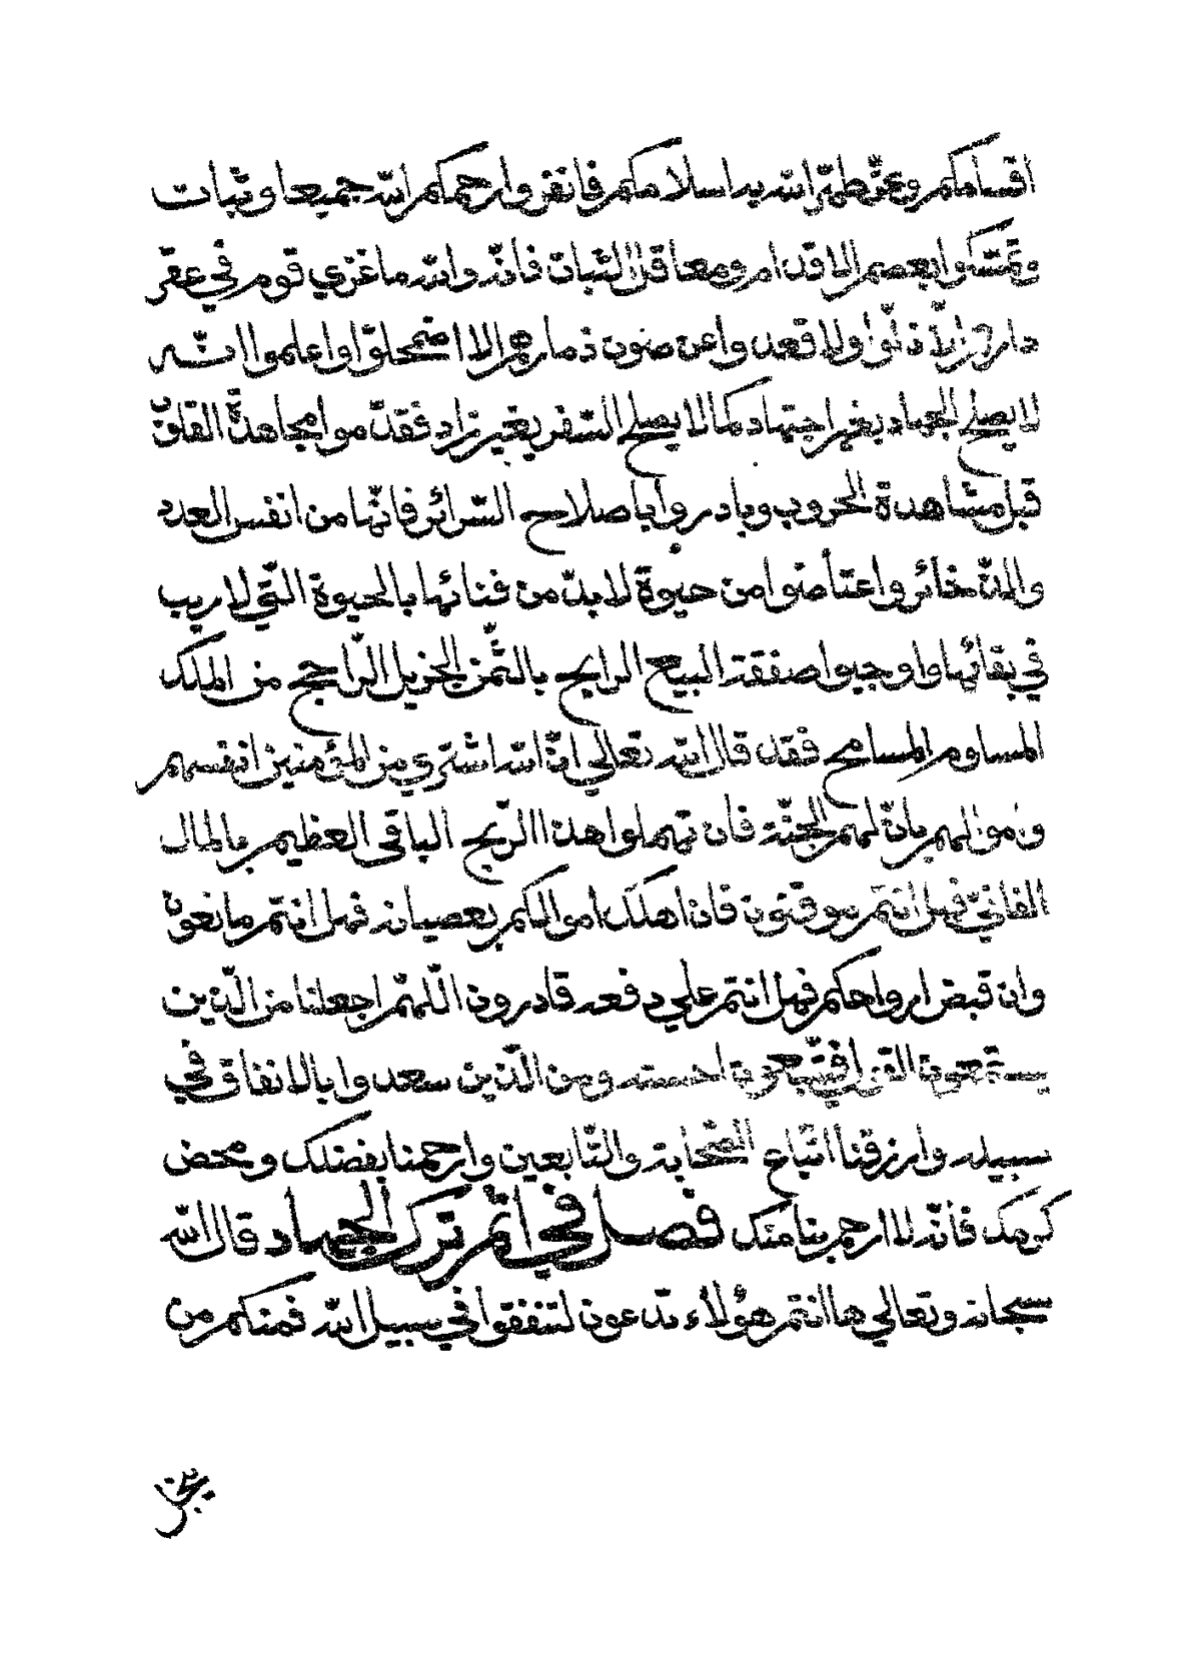 اقسامكم وعن طهر الله به اسلامكم فانفروا رحمكم الله جميعا وثبات
وتمسكوا بعصم الاقدام ومعاقل الثبات فانه والله ما غزي قوم في عقر
دارهم الّا ذلّوا ولا قعدوا عن صون ذمارهم الا اضمحلّوا واعلموا انّه
لا يصلح الجهاد بغير اجتهاد كما لا يصلح السّفر بغير زاد فقدّموا مجاهدة القلوب
قبل مشاهدة الحروب وبادروا باصلاح السّرائر فانّها من انفس العدد
والذخائر واعتاضوا من حيوة لا بدّ من فنائها بالحيوة الّتي لا ريب
في بقائها واوجبوا صفقة البيع الرابح بالثّمن الجزيل الرّاجح من الملك
المساوم المسامح فقد قال الله تعالي انّ الله اشتري من المؤمنين انفسهم
واموالهم بانّ لهم الجنّة فان تهملوا هذا الرّبح الباقي العظيم بالمال
الفاني فهل انتم موقنون فان اهلك اموالكم بعصيانه فهل انتم مانعون
وان قبض ارواحكم فهل انتم علي دفعه قادرون اللّهمّ اجعلنا من الّذين
يستمعون القول فيتّبعون احسنه ومن الّذين سعدوا بالانفاق في
سبيله وارزقنا اتّباع الصّحابة والتّابعين وارحمنا بفضلك ومحض
كرمك فانّه لا ارحم بنا منك فصل في اثم ترك الجهاد قال الله
سبحانه وتعالي ها انتم هؤلاء تدعون لتنفقوا في سبيل الله فمنكم من